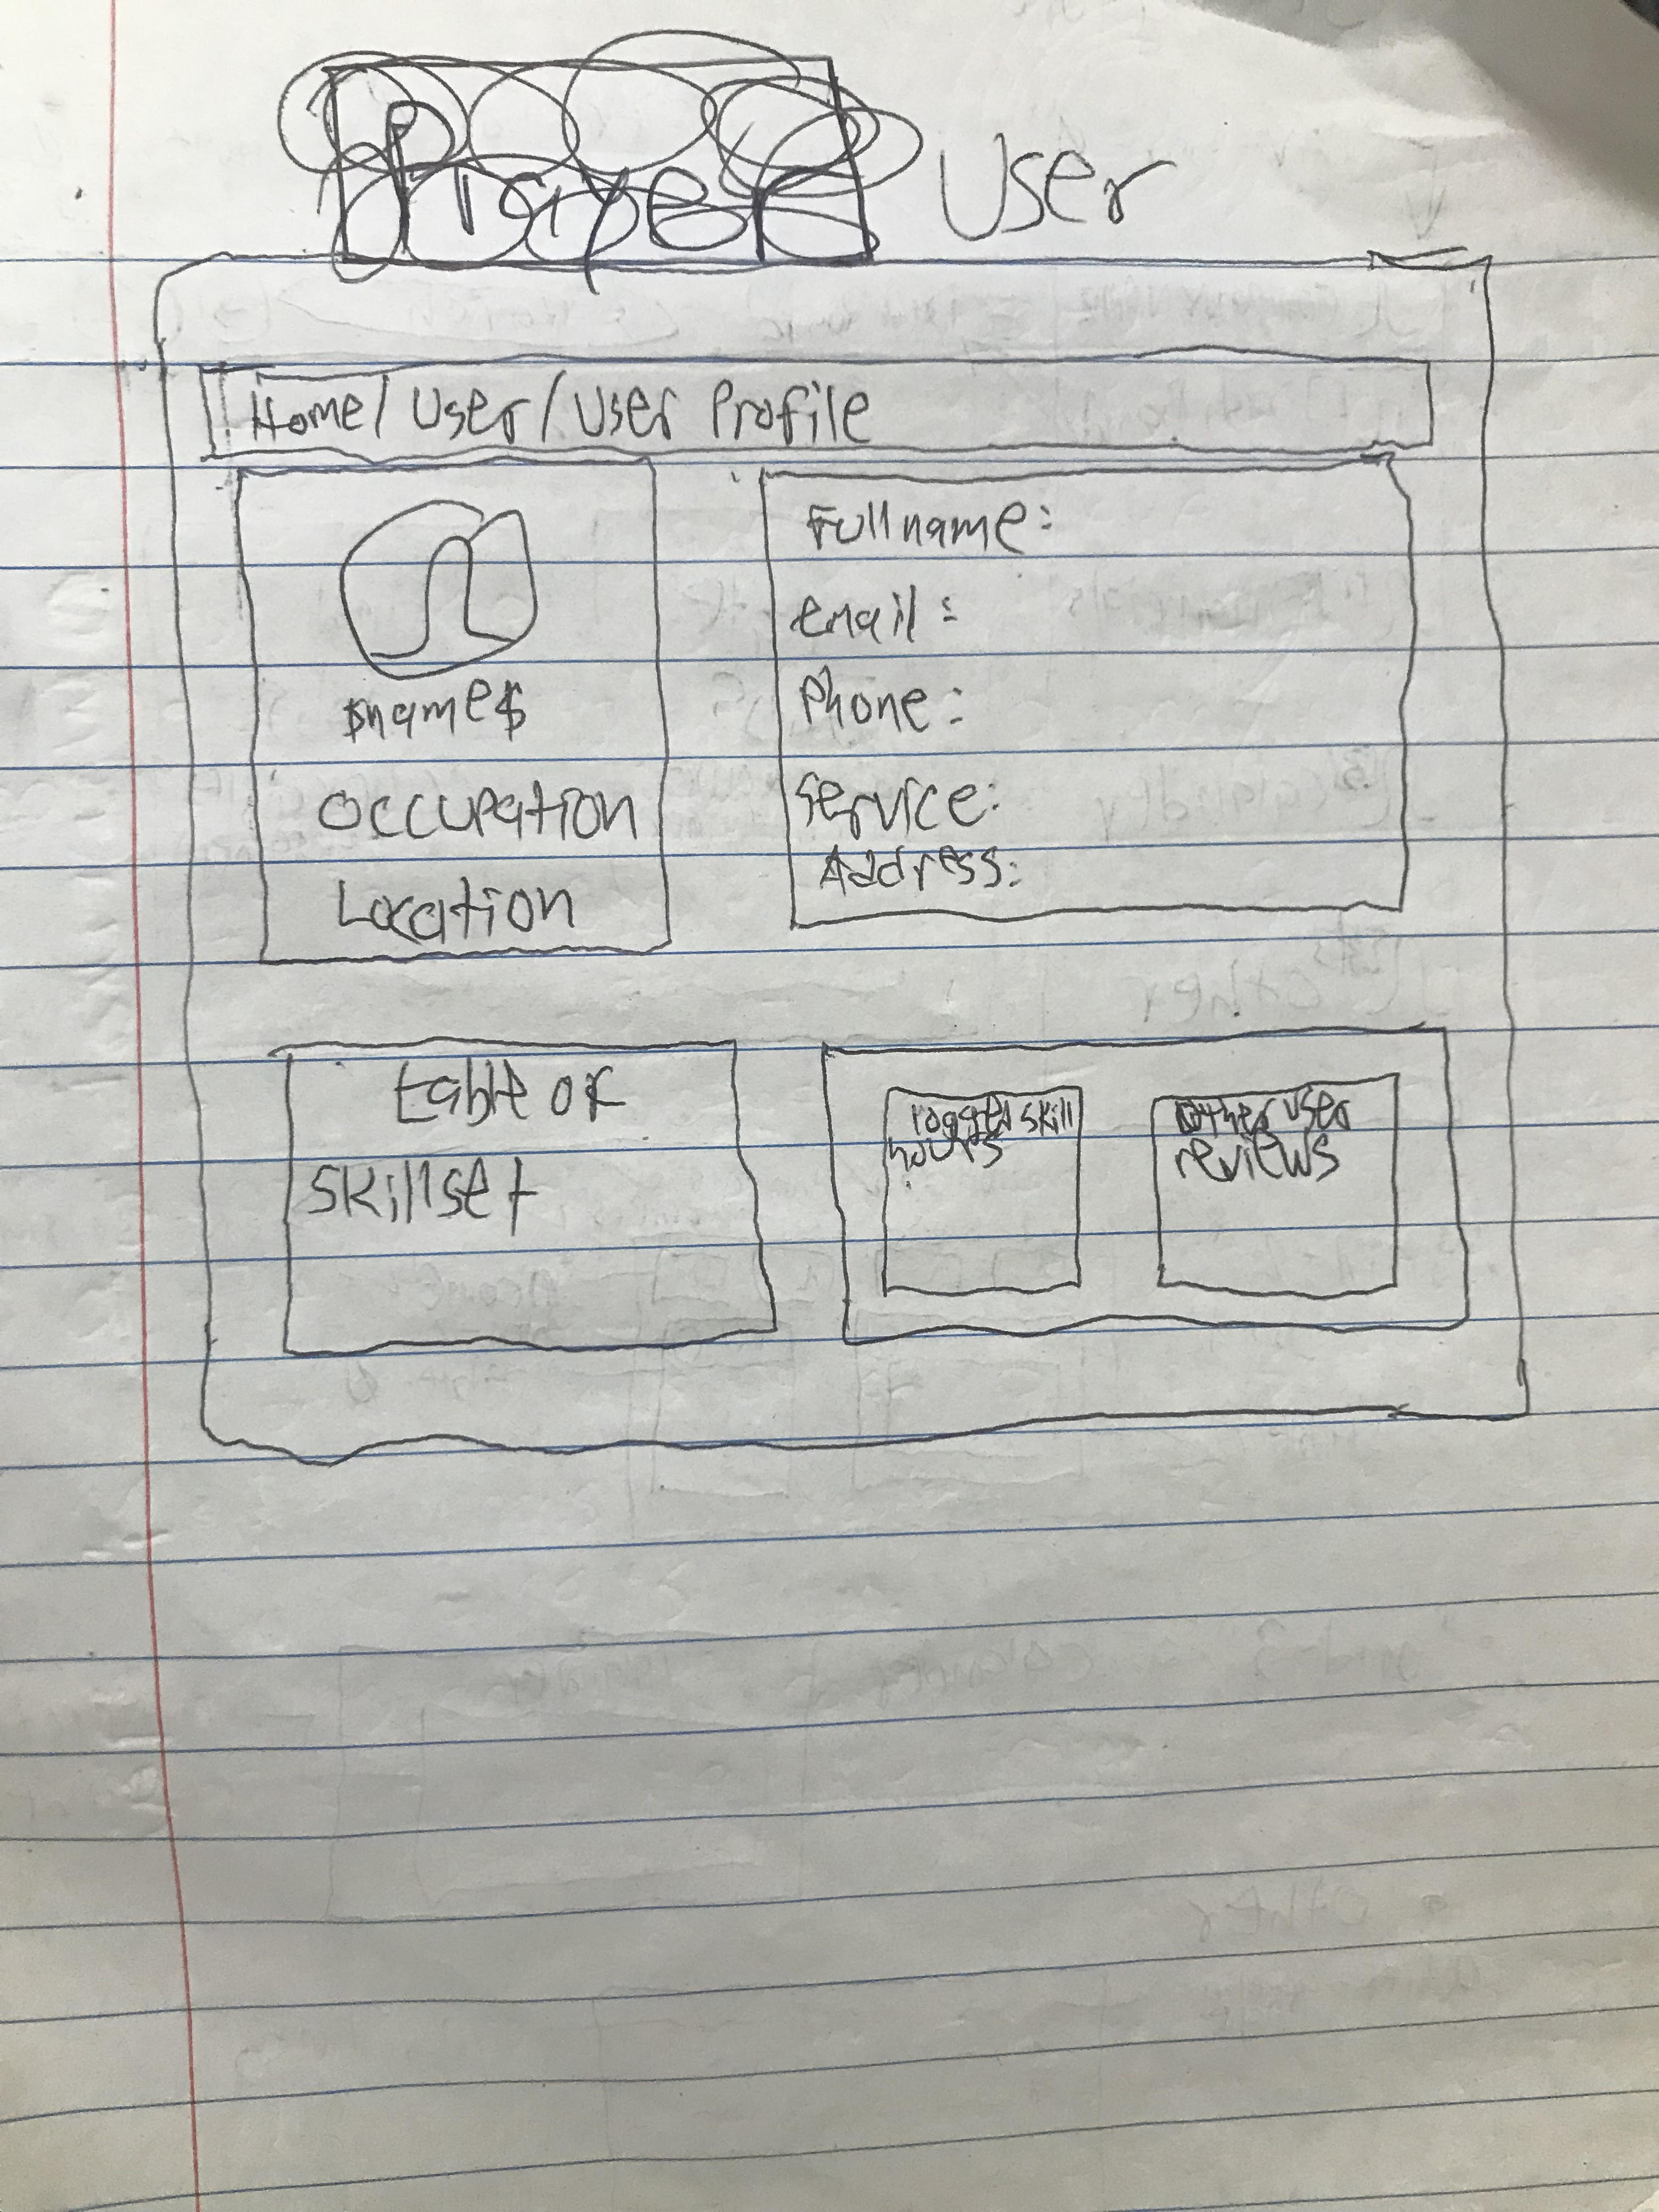 User
Home/User/User Profile
$name$
Occupation
Location
Full name:
email:
Phone:
Service:
Address:
table of
skillset
logged skill
hours
other user
reviews